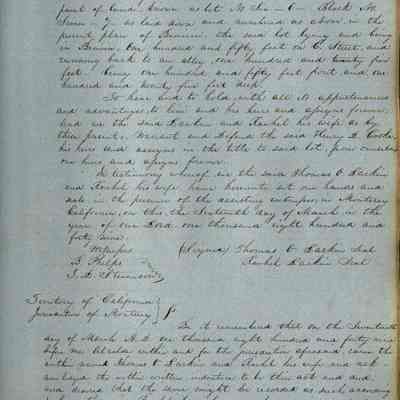 part of land known as lot No Six – 6 – Block No
Seven – 7 – as laid down and numbered as above in the
present plan of Benicia, the said lot lying and being
in Benicia, One hundred and fifty feet on C. Street, and
running back to an alley, one hundred and twenty five
feet – being one hundred and fifty feet front and one
hundred and twenty five feet deep.
To have and to hold, with all appurtenances
and advantages, to him and his heirs and assigns forever,
and we the said Larkin and Rachel his wife do by
these presents, Warrant and Defend the said Henry D. Cooke
his heirs and assigns in the title to said lot, from ourselves
our heirs and assigns forever.
In testimony whereof we the said Thomas O. Larkin
and Rachel his wife have hereunto set our hands and
seals in the presence of the assisting witnesses, in Monterey
California, on this, the Seventeenth day of March in the
year of our Lord one thousand eight hundred and
forty nine.
Witnesses (Signed) Thomas O Larkin Seal
B Phelps Rachel Larkin Seal
J. D. Stevenson
Territory of California
Jurisdiction of Monterey
Be it remembered that on the Seventeenth
day of March A.D. one thousand eight hundred and forty nine
before me Alcalde within and for the jurisdiction aforesaid, came the
within named Thomas O Larkin and Rachel his wife and ack-
nowledged the within written indenture to be their act and deed,
and desired that the same might be recorded as such, according